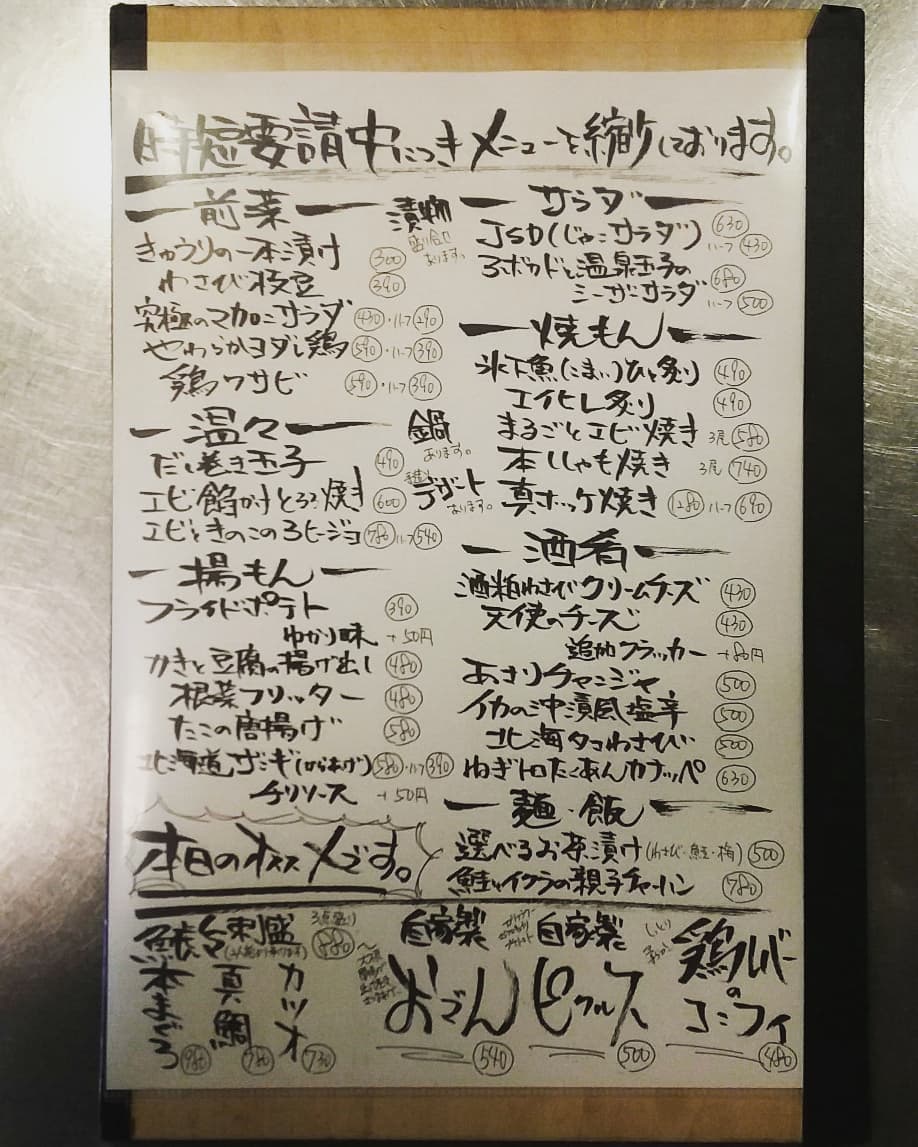 時短要請中につきメニューを縮小しております。
前菜
漬物
盛り合せ
あります。
きゅうりの一本漬け 300
わさび枝豆 390
究極のマカロニサラダ 430・ハーフ290
やわらかヨダレ鶏 590・ハーフ390
鶏ワサビ 590・ハーフ390
温々
鍋
あります。
だし巻き玉子 490
エビ餡かけとろろ焼き 600
デザート
あります。
エビときのこのアヒージョ 780ハーフ540
揚もん
フライドポテト 390
ゆかり味 +50円
かきと豆腐の揚げ出し 480
根菜フリッター 480
たこの唐揚げ 580
北海道ザンギ(からあげ) 580・ハーフ390
チリソース +50円
サラダ
JSD(じゃこサラダ) 630
ハーフ430
アボカドと温泉玉子の 680
シーザーサラダ ハーフ500
焼もん
氷下魚(こまい)ひと炙り 490
エイヒレ炙り 490
まるごとエビ焼き 3尾580
本ししゃも焼き 3尾740
真ホッケ焼き 1280ハーフ690
酒肴
酒粕わさびクリームチーズ 430
天使のチーズ 430
追加クラッカー +80円
あさりチャンジャ 500
イカの沖漬風塩辛 500
北海タコわさび 500
ねぎトロたくあんカナッペ 630
麺・飯
選べるお茶漬け(わさび・鮭・梅) 500
鮭とイクラの親子チャーハン 780
本日のオススメです。
刺盛 3点盛り 880
本まぐろ 980
真鯛 780
カツオ 730
自家製
おでん 540
自家製
ピクルス 500
鶏レバー
の
コンフィ 480